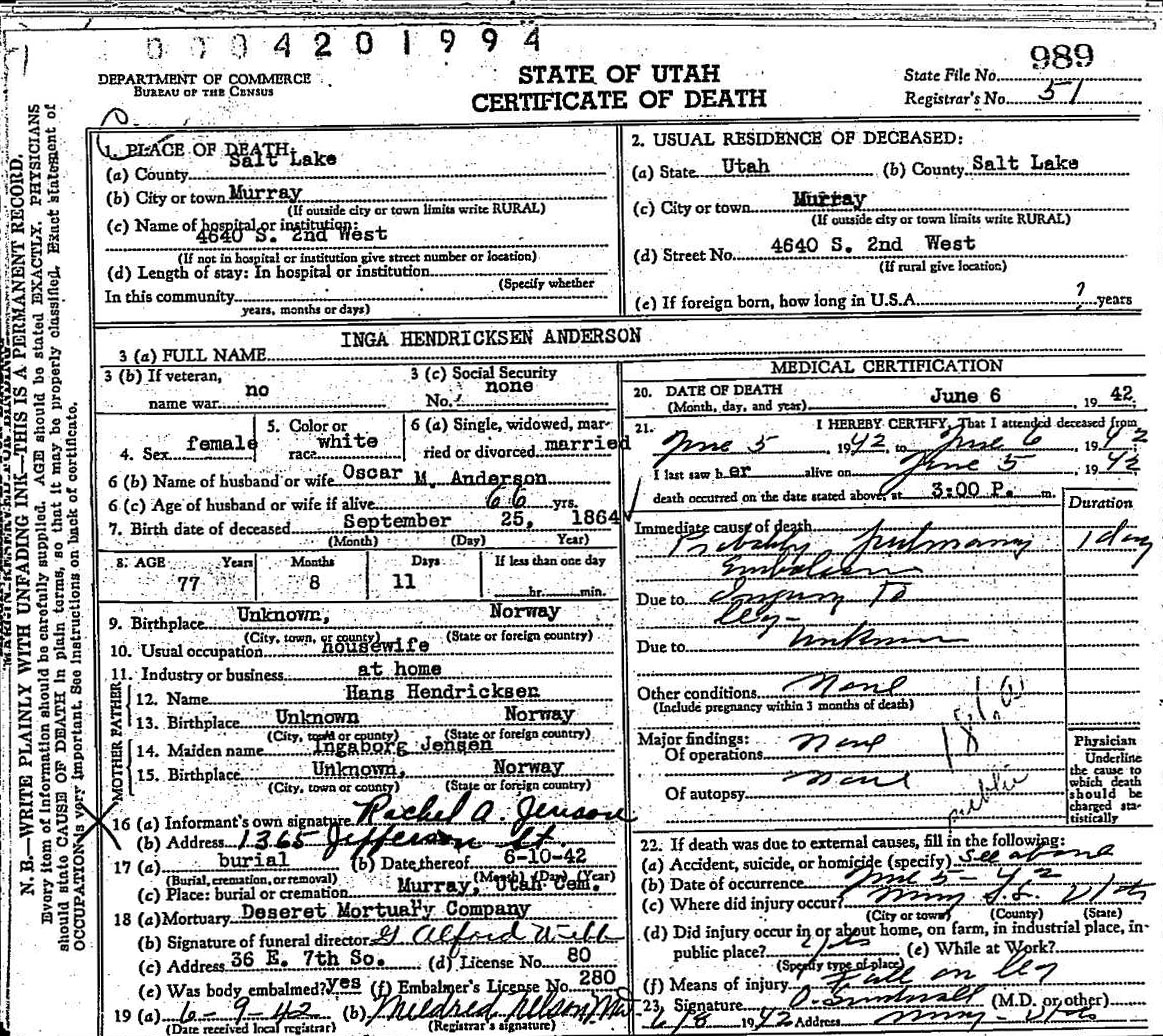 0004201994
989
DEPARTMENT OF COMMERCE
BUREAU OF THE CENSUS
STATE OF UTAH
CERTIFICATE OF DEATH
State File No.
Registrar's No. 51
N. B.—WRITE PLAINLY WITH UNFADING INK—THIS IS A PERMANENT RECORD.
Every item of information should be carefully supplied. AGE should be stated EXACTLY. PHYSICIANS
should state CAUSE OF DEATH in plain terms, so that it may be properly classified. Exact statement of
OCCUPATION is very important. See instructions on back of certificate.
1. PLACE OF DEATH:
(a) County Salt Lake
(b) City or town Murray
(If outside city or town limits write RURAL)
(c) Name of hospital or institution:
4640 S. 2nd West
(If not in hospital or institution give street number or location)
(d) Length of stay: In hospital or institution
(Specify whether
In this community
years, months or days)
2. USUAL RESIDENCE OF DECEASED:
(a) State Utah (b) County Salt Lake
(c) City or town Murray
(If outside city or town limits write RURAL)
(d) Street No. 4640 S. 2nd West
(If rural give location)
(e) If foreign born, how long in U.S.A. ? years
3 (a) FULL NAME INGA HENDRICKSEN ANDERSON
3 (b) If veteran,
name war no
3 (c) Social Security
No. none
4. Sex female
5. Color or
race white
6 (a) Single, widowed, mar-
ried or divorced married
6 (b) Name of husband or wife Oscar M. Anderson
6 (c) Age of husband or wife if alive 66 yrs.
7. Birth date of deceased September 25, 1864
(Month) (Day) Year)
8. AGE Years Months Days If less than one day
77 8 11 hr. min.
9. Birthplace Unknown, Norway
(City, town, or county) (State or foreign country)
10. Usual occupation housewife
11. Industry or business at home
FATHER
12. Name Hans Hendricksen
13. Birthplace Unknown Norway
(City, town or county) (State or foreign country)
MOTHER
14. Maiden name Ingaborg Jensen
15. Birthplace Unknown, Norway
(City, town or county) (State or foreign country)
16 (a) Informant's own signature Rachel A. Jenson
(b) Address 1365 Jefferson St
17 (a) burial (b) Date thereof 6-10-42
(Burial, cremation, or removal) (Month) (Day) (Year)
(c) Place: burial or cremation Murray, Utah Cem.
18 (a) Mortuary Deseret Mortuary Company
(b) Signature of funeral director
(c) Address 36 E. 7th So. (d) License No. 80
(e) Was body embalmed? yes (f) Embalmer's License No. 280
19 (a) 6-9-42 (b) Mildred Nelson
(Date received local registrar) (Registrar's signature)
MEDICAL CERTIFICATION
20. DATE OF DEATH
(Month, day, and year) June 6, 19 42.
21. I HEREBY CERTIFY, That I attended deceased from
June 5, 1942, to June 6, 1942
I last saw h er alive on June 5 1942
death occurred on the date stated above, at 3:00 P. m.
Duration
Immediate cause of death
Probably pulmonary 1 day
Embolism
Due to Injury to
leg
Due to Unknown
Other conditions None
(Include pregnancy within 3 months of death)
Major findings:
Of operations None
Of autopsy None
public
Physician
Underline
the cause to
which death
should be
charged sta-
tistically
22. If death was due to external causes, fill in the following:
(a) Accident, suicide, or homicide (specify) See above
(b) Date of occurrence June 5-42
(c) Where did injury occur? Murray S.L. Utah
(City or town) (County) (State)
(d) Did injury occur in or about home, on farm, in industrial place, in
public place? (e) While at Work?
(Specify type of place)
(f) Means of injury Fall on leg
23. Signature (M.D. or other)
6/8 1942 Address Murray - Utah